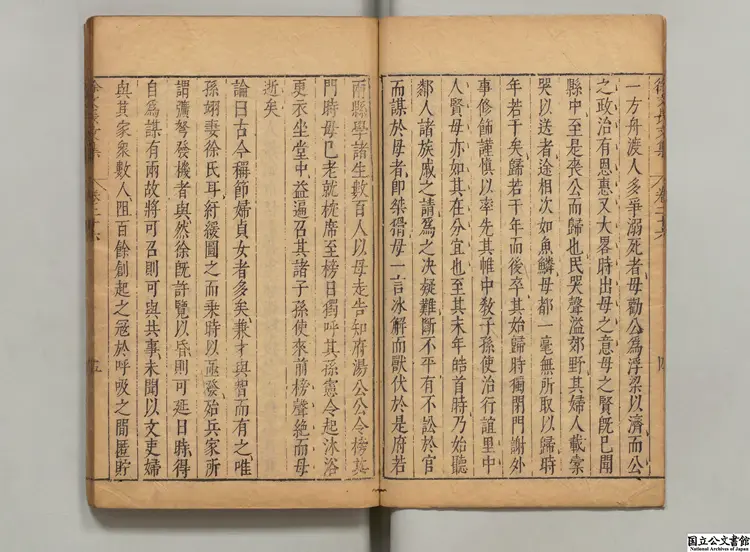 一方舟渡人多爭溺死者母勸公為浮梁以濟而公
之政治有恩惠又大畧時出母之意母之賢既已聞
縣中至是喪公而歸也民哭聲溢郊野其婦人載棗
哭以送者途相次如魚鱗母都一毫無所取以歸時
年若干矣歸若干年而後卒其始歸時獨閉門謝外
事修飾謹慎以率先其帷中敎子孫使治行誼里中
人賢母亦如其在分宜也至其末年皓首時乃始聽
鄰人諸族戚之請為之決疑難斷不平有不訟於官
而謀於母者卽桀猾母一言冰解而獸伏於是府若
兩縣學諸生數百人以母走告知府湯公公令榜其
門時母已老就枕席至榜日獨呼其孫憲令起沐浴
更衣坐堂中益遍召其諸子孫使來前榜聲絶而母
逝矣
論曰古今稱節婦貞女者多矣兼才與智而有之唯
孫翊妻徐氏耳紆緩圖之而乗時以亟發殆兵家所
謂彍弩發機者與然徐既許覽以昏則可延日時得
自為謀有兩故將可召則可與共事未聞以文吏婦
與其家衆數人阻百餘創起之冦於呼吸之間匿貯
卷二十六
五
国立公文書館
National Archives of Japan